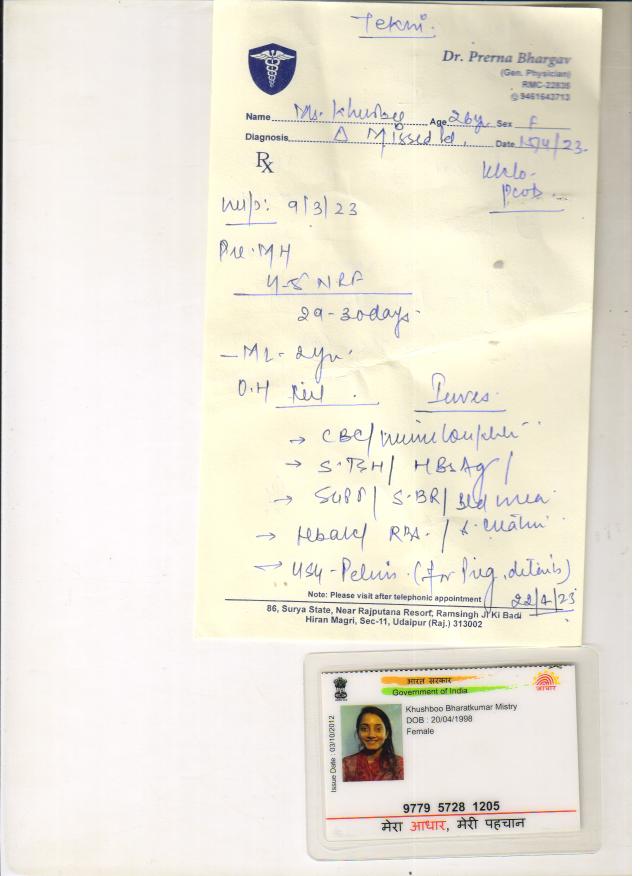 Tekni.
Dr. Prerna Bhargav
(Gen. Physician)
RMC-22835
9461643713
Name Ms. Khushboo Age 26y Sex F
Diagnosis Δ Missed Pd. Date 15/4/23.
K/c/o-
PCOD.
Rx
LMP: 9/3/23
Pre. MH
4-5 NRF
29-30days.
- ML - 2yr.
O.H Nil. Inves.
→ CBC/ Urine Complete
→ S.TSH/ HBsAg/
→ SGPT/ S.BR/ Bld urea
→ HbA1c/ RBS. / S. Creatin
→ USG-Pelvis. (for Preg. details)
Note: Please visit after telephonic appointment 22/4/23
86, Surya State, Near Rajputana Resort, Ramsingh Ji Ki Badi
Hiran Magri, Sec-11, Udaipur (Raj.) 313002
भारत सरकार
Government of India
आधार
Issue Date : 03/10/2012
Khushboo Bharatkumar Mistry
DOB : 20/04/1998
Female
9779 5728 1205
मेरा आधार, मेरी पहचान